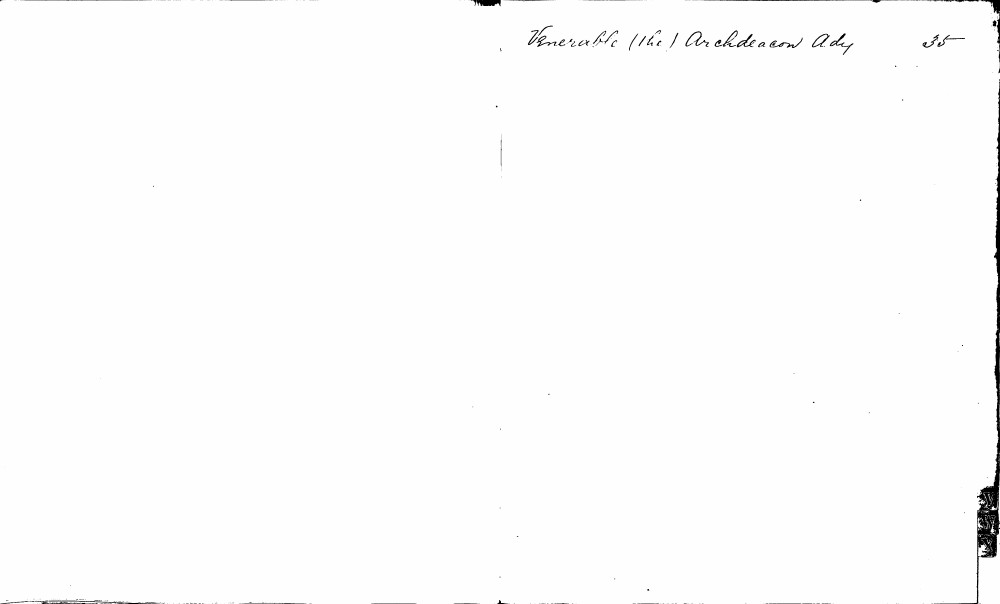 Venerable (the) Archdeacon Ady 35